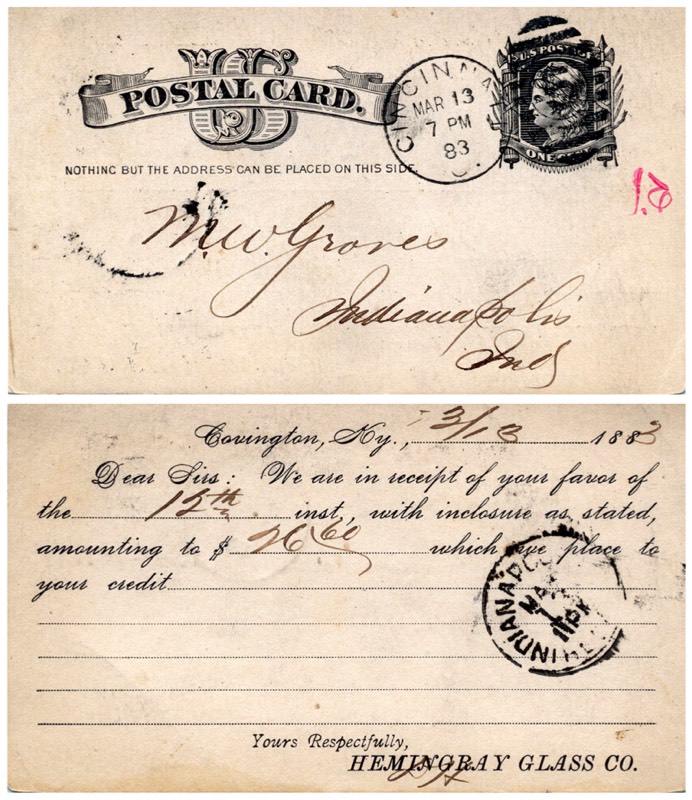 US
POSTAL CARD.
NOTHING BUT THE ADDRESS CAN BE PLACED ON THIS SIDE.
CINCINNATI
MAR 13
7 PM
83
O.
U.S. POSTAGE
ONE CENT
M. W. Groves
Indianapolis
Ind
Covington, Ky., 3/13 1883
Dear Sirs: We are in receipt of your favor of
the 12th inst., with inclosure as stated,
amounting to $ 26 60 which we place to
your credit
INDIANAPO
MA
Yours Respectfully,
HEMINGRAY GLASS CO.